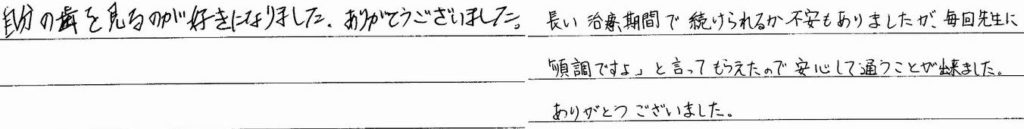 自分の歯を見るのが好きになりました。ありがとうございました。
長い治療期間で続けられるか不安もありましたが、毎回先生に
「順調ですよ」と言ってもらえたので安心して通うことが出来ました。
ありがとうございました。